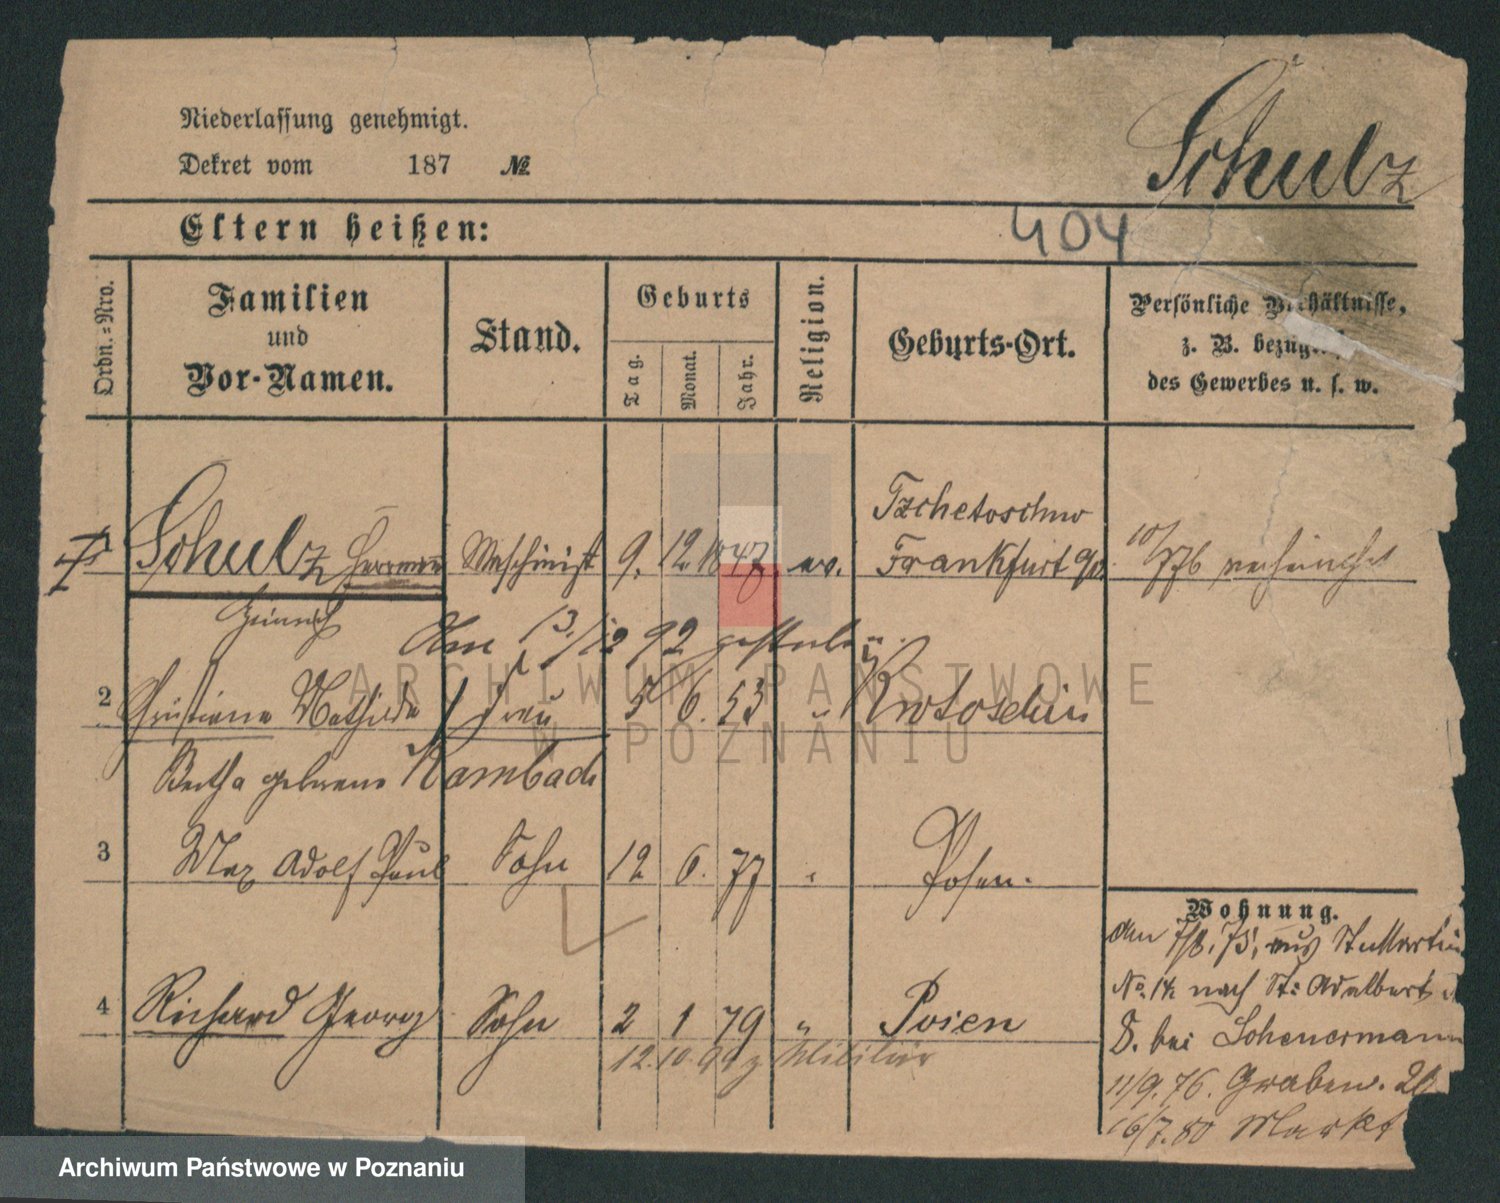 Niederlassung genehmigt.
Dekret vom 187 №
Schulz
Eltern heißen:
404
Ordn.=Nro.
Familien
und
Vor-Namen.
Stand.
Geburts
Tag.
Monat.
Jahr.
Religion.
Geburts-Ort.
Persönliche Verhältnisse,
z. B. bezügl
des Gewerbes u. s. w.
Tzchetoschnow
1 Schulz Herrmann Maschinist 9. 12 1847 ev. Frankfurt a/O. 10/7 76
Heinrich
Am 13/12 92 gestorben.
2 Christiane Mathilde Frau 5 6. 53 " Krotoschin
Bertha geborene Rambach
3 Max Adolf Paul Sohn 12 6. 77 " Posen.
4 Richard Georg Sohn 2 1 79 " Posen
12.10.99 z Militär
Wohnung.
den 7/8. 75, aus St. Martin
No. 14 nach St: Adalbert
8. bei Scheuermann
11/9. 76. Graben. 2
16/7. 80 Markt
ARCHIWUM PAŃSTWOWE
W POZNANIU
Archiwum Państwowe w Poznaniu